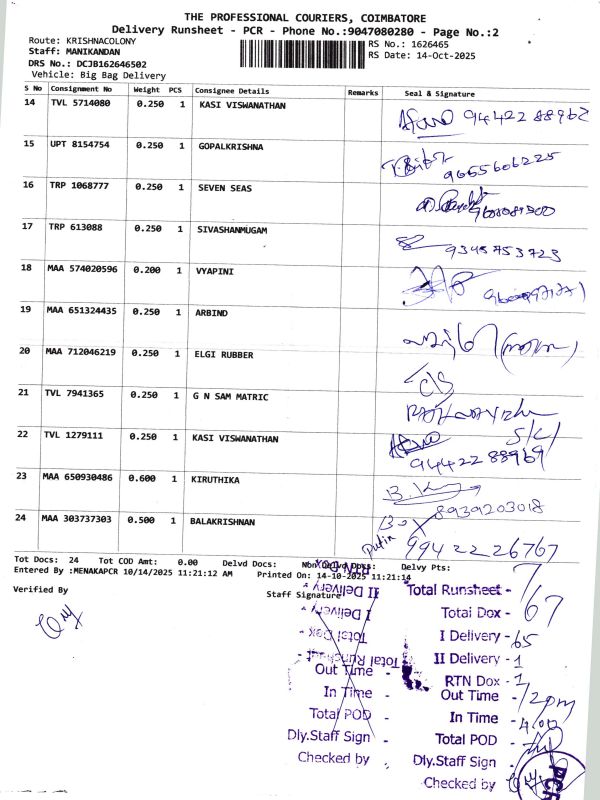 THE PROFESSIONAL COURIERS, COIMBATORE
Delivery Runsheet - PCR - Phone No.:9047080280 - Page No.:2
Route: KRISHNACOLONY
RS No.: 1626465
Staff: MANIKANDAN
RS Date: 14-Oct-2025
DRS No.: DCJB162646502
Vehicle: Big Bag Delivery
S No Consignment No Weight PCS Consignee Details Remarks Seal & Signature
14 TVL 5714080 0.250 1 KASI VISWANATHAN 94422 88962
15 UPT 8154754 0.250 1 GOPALKRISHNA 9655606225
16 TRP 1068777 0.250 1 SEVEN SEAS
17 TRP 613088 0.250 1 SIVASHANMUGAM 9345753723
18 MAA 574020596 0.200 1 VYAPINI
19 MAA 651324435 0.250 1 ARBIND
20 MAA 712046219 0.250 1 ELGI RUBBER
21 TVL 7941365 0.250 1 G N SAM MATRIC
22 TVL 1279111 0.250 1 KASI VISWANATHAN 94422 88969
23 MAA 650930486 0.600 1 KIRUTHIKA 8939203018
24 MAA 303737303 0.500 1 BALAKRISHNAN Box 99422 26767
Tot Docs: 24 Tot COD Amt: 0.00 Delvd Docs: Non Delvd Docs: Delvy Pts:
Entered By :MENAKAPCR 10/14/2025 11:21:12 AM Printed On: 14-10-2025 11:21:14
Verified By
Staff Signature
RTN Dox
II Delivery
I Delivery
Total Dox
Total Runsheet
Out Time -
In Time -
Total POD -
Dly.Staff Sign -
Checked by -
Total Runsheet -
Total Dox - 67
I Delivery - 65
II Delivery - 1
RTN Dox - 1
Out Time - 12pm
In Time -
Total POD -
Dly.Staff Sign -
Checked by -
PCR